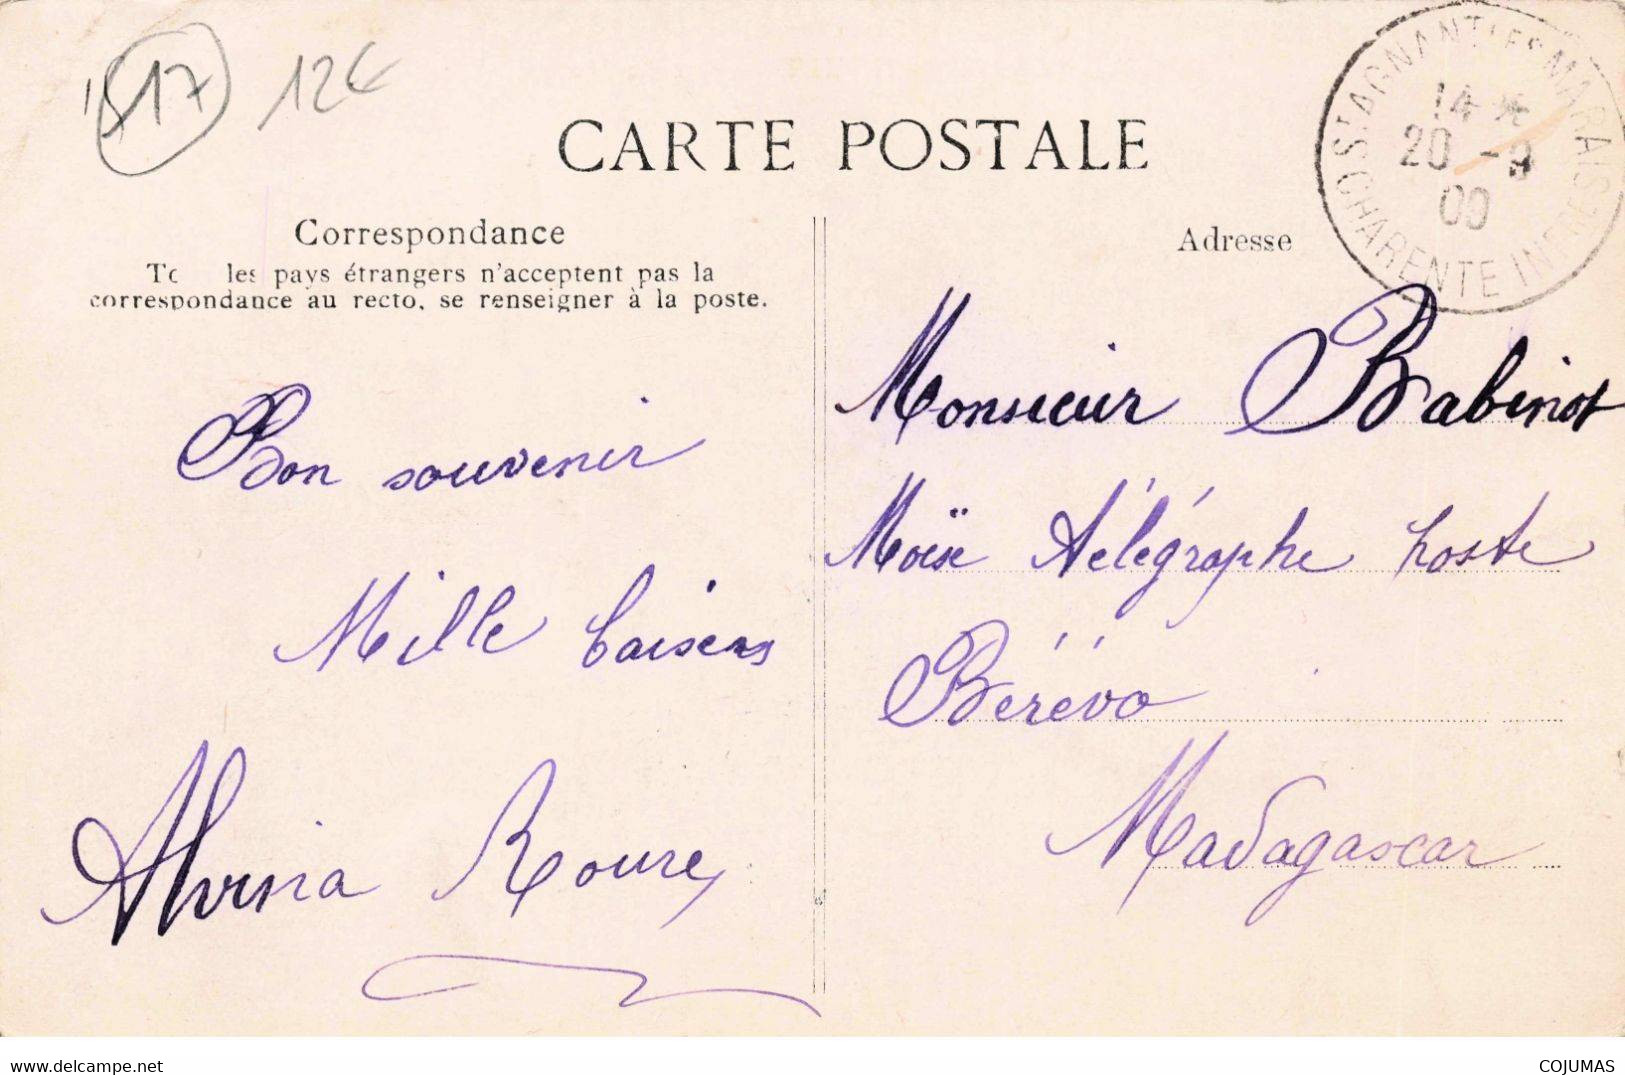 17 12€
CARTE POSTALE
ST AGNANT LES MARAIS
14
20 -9
09
CHARENTE INFRE
Correspondance
Adresse
les pays étrangers n'acceptent pas la
correspondance au recto, se renseigner à la poste.
Monsieur Babinot
Bon souvenir
Moïse Télégraphe Poste
Mille baisers
Bérévo
Alvina Roure
Madagascar
COJUMAS